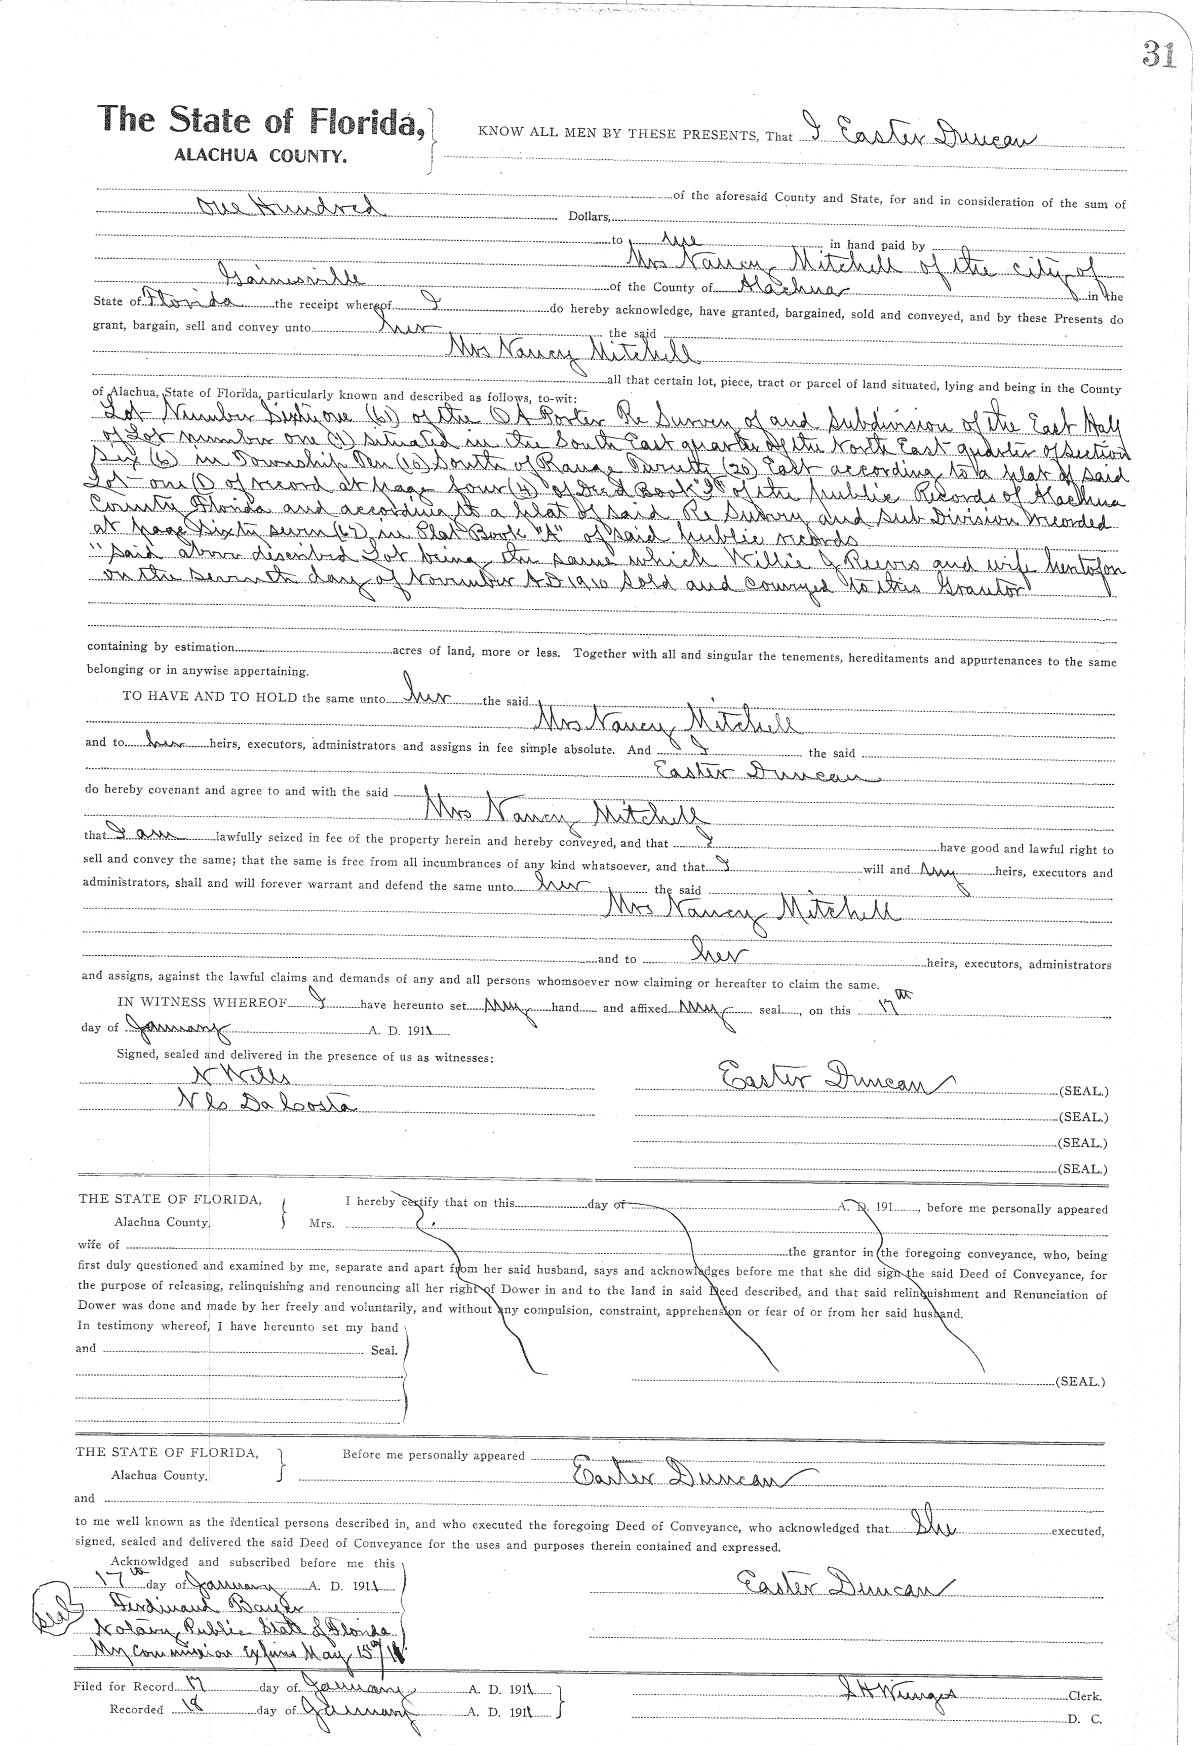 31
The State of Florida,
ALACHUA COUNTY.
KNOW ALL MEN BY THESE PRESENTS, That I Easter Duncan
of the aforesaid County and State, for and in consideration of the sum of
One Hundred Dollars,
to me in hand paid by
Mrs Nancy Mitchell of the city of
Gainesville of the County of Alachua in the
State of Florida the receipt whereof I do hereby acknowledge, have granted, bargained, sold and conveyed, and by these Presents do
grant, bargain, sell and convey unto her the said
Mrs Nancy Mitchell
all that certain lot, piece, tract or parcel of land situated, lying and being in the County
of Alachua, State of Florida, particularly known and described as follows, to-wit:
Lot Number Sixtyone (61) of the O A Porter Re Survey of and Subdivision of the East Half
of Lot number one (1) situated in the South East quarter of the North East quarter of Section
Six (6) in Township Ten (10) South of Range Twenty (20) East according to a plat of said
Lot one (1) of record at page four (4) of Deed Book "I" of the public Records of Alachua
County Florida and according to a plat of said Re Survey and Sub Division recorded
at page Sixty seven (67) in Plat Book "A" of said public records
" Said above discribed Lot being the same which Willie J Reeves and wife heretofor
on the seventh day of November A.D. 1910 sold and conveyed to this Grantor
containing by estimation acres of land, more or less. Together with all and singular the tenements, hereditaments and appurtenances to the same
belonging or in anywise appertaining.
TO HAVE AND TO HOLD the same unto her the said
Mrs Nancy Mitchell
and to her heirs, executors, administrators and assigns in fee simple absolute. And I the said
Easter Duncan
do hereby covenant and agree to and with the said
Mrs Nancy Mitchell
that I am lawfully seized in fee of the property herein and hereby conveyed, and that I have good and lawful right to
sell and convey the same; that the same is free from all incumbrances of any kind whatsoever, and that I will and my heirs, executors and
administrators, shall and will forever warrant and defend the same unto her the said
Mrs Nancy Mitchell
and to her heirs, executors, administrators
and assigns, against the lawful claims and demands of any and all persons whomsoever now claiming or hereafter to claim the same.
IN WITNESS WHEREOF I have hereunto set my hand and affixed my seal, on this 17th
day of January A. D. 1911
Signed, sealed and delivered in the presence of us as witnesses:
N Wills
N C Da Costa
Easter Duncan (SEAL.)
(SEAL.)
(SEAL.)
(SEAL.)
THE STATE OF FLORIDA,
Alachua County.
I hereby certify that on this day of A. D. 191, before me personally appeared
Mrs.
wife of the grantor in the foregoing conveyance, who, being
first duly questioned and examined by me, separate and apart from her said husband, says and acknowledges before me that she did sign the said Deed of Conveyance, for
the purpose of releasing, relinquishing and renouncing all her right of Dower in and to the land in said Deed described, and that said relinquishment and Renunciation of
Dower was done and made by her freely and voluntarily, and without any compulsion, constraint, apprehension or fear of or from her said husband.
In testimony whereof, I have hereunto set my hand
and Seal.
(SEAL.)
THE STATE OF FLORIDA,
Alachua County.
Before me personally appeared
Easter Duncan
and
to me well known as the identical persons described in, and who executed the foregoing Deed of Conveyance, who acknowledged that She executed,
signed, sealed and delivered the said Deed of Conveyance for the uses and purposes therein contained and expressed.
Acknowldged and subscribed before me this
17th day of January A. D. 1911
Easter Duncan
Seal
Ferdinand Bayer
Notary Public State of Florida
My commission Expires May 15th
Filed for Record 17 day of January A. D. 1911
Clerk.
Recorded 18 day of January A. D. 1911
D. C.